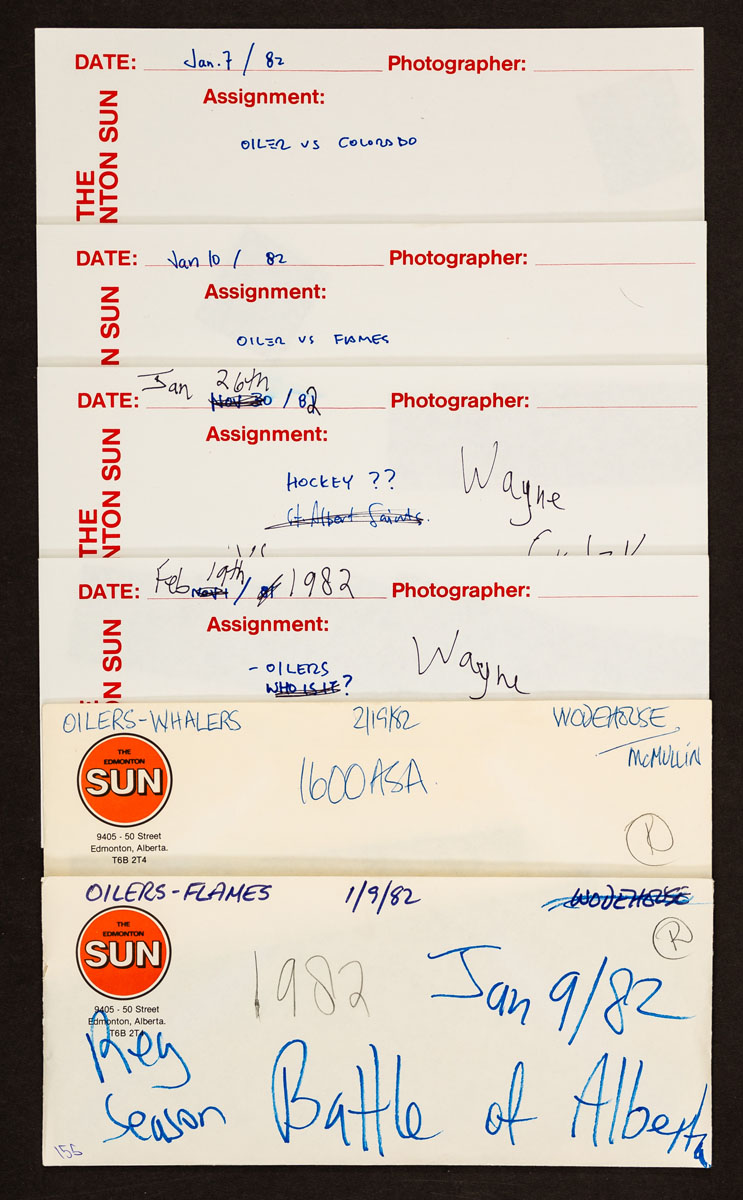 DATE: Jan. 7 / 82 Photographer:
Assignment:
THE
NTON SUN
OILER VS COLORADO
DATE: Jan 10 / 82 Photographer:
Assignment:
N SUN
OILER VS FLAMES
Jan 26th
DATE: Nov 30 / 82 Photographer:
Assignment:
THE
NTON SUN
HOCKEY ?? Wayne
St Albert Saints.
vs
Feb 19th
DATE: Nov / 1982 Photographer:
Assignment:
N SUN
- OILERS Wayne
WHO IS IT?
OILERS-WHALERS 2/19/82 WODEHOUSE
McMULLIN
THE
EDMONTON
SUN
1600 ASA.
9405 - 50 Street
Edmonton, Alberta.
T6B 2T4
R
OILERS-FLAMES 1/9/82 WODEHOUSE
R
THE
EDMONTON
SUN
1982 Jan 9/82
9405 - 50 Street
Edmonton, Alberta.
T6B 2T4
Reg
Season Battle of Alberta
155